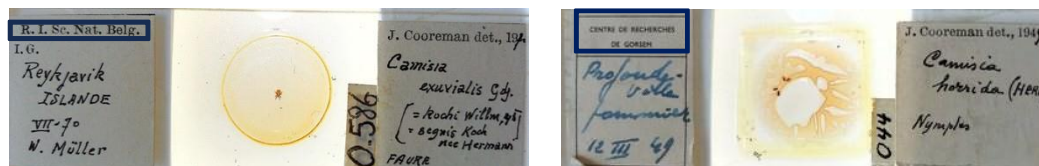 R. I. Sc. Nat. Belg.
I.G.
Reykjavik
ISLANDE
VII-70
W. Müller
0.586
J. Cooreman det., 19
Camisia
exuvialis Gdj.
[= Kochi Willm,
= segnis Koch
nec Hermann
FAUNE
CENTRE DE RECHERCHES
DE GORSEM
Profonde-
ville
12 III 49
O.440
J. Cooreman det., 194
Camisia
horrida (HER
Nymphes